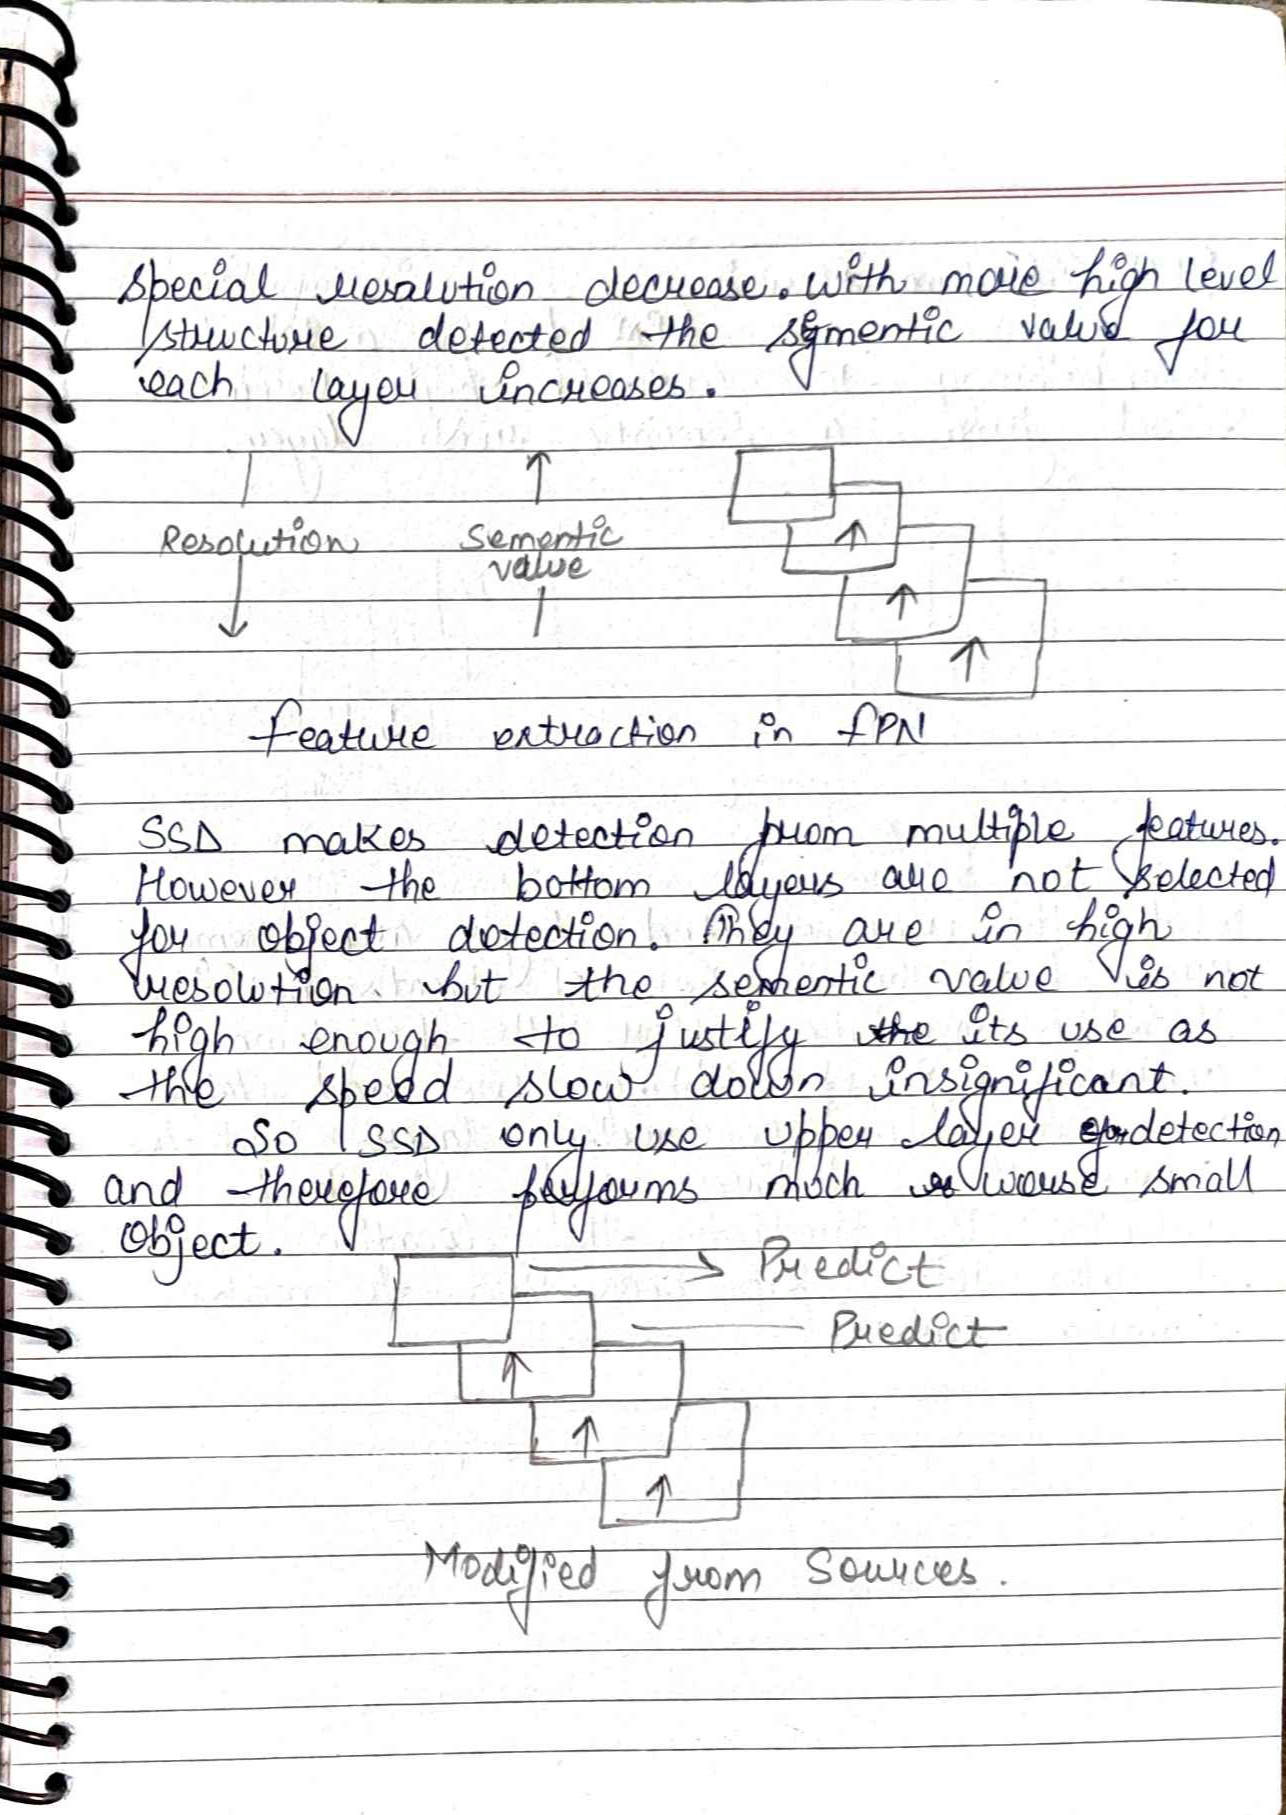 special resalution decrease. With more high level
structure detected the sementic value for
each layer increases.
Resolution
Sementic
value
feature extraction in fPN
SSD makes detection from multiple features.
However the bottom layers are not selected
for object detection. They are in high
resolution but the sementic value is not
high enough to justify the its use as
the speed slow down insignificant.
So SSD only use upper layer for detection
and therefore performs much worse small
object.
Predict
Predict
Modified from Sources.